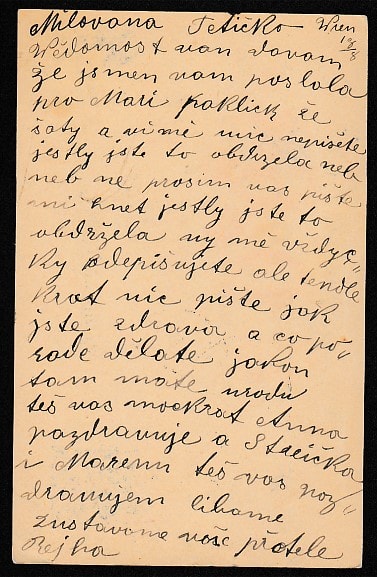 Milovana Tetičko Wien
Vědomost vam davam 18/8
že jsmen vam poslala
pro Mari paklick že
šaty a vimě nic nepišete
jestly jste to obdržela neb
neb ne prosim vas pište
mi hnet jestly jste to
obdržela vy mě vždyc„
ky odepisujete ale tendle
krat nic pište jak
jste zdrava a co po„
rade dělate jakou
tam mate urodu
teš vas mockrat Anna
pozdravuje a Stačička
i Marenu teš vas poz„
dravujem libame
zustavame vaše přatele
Rejha